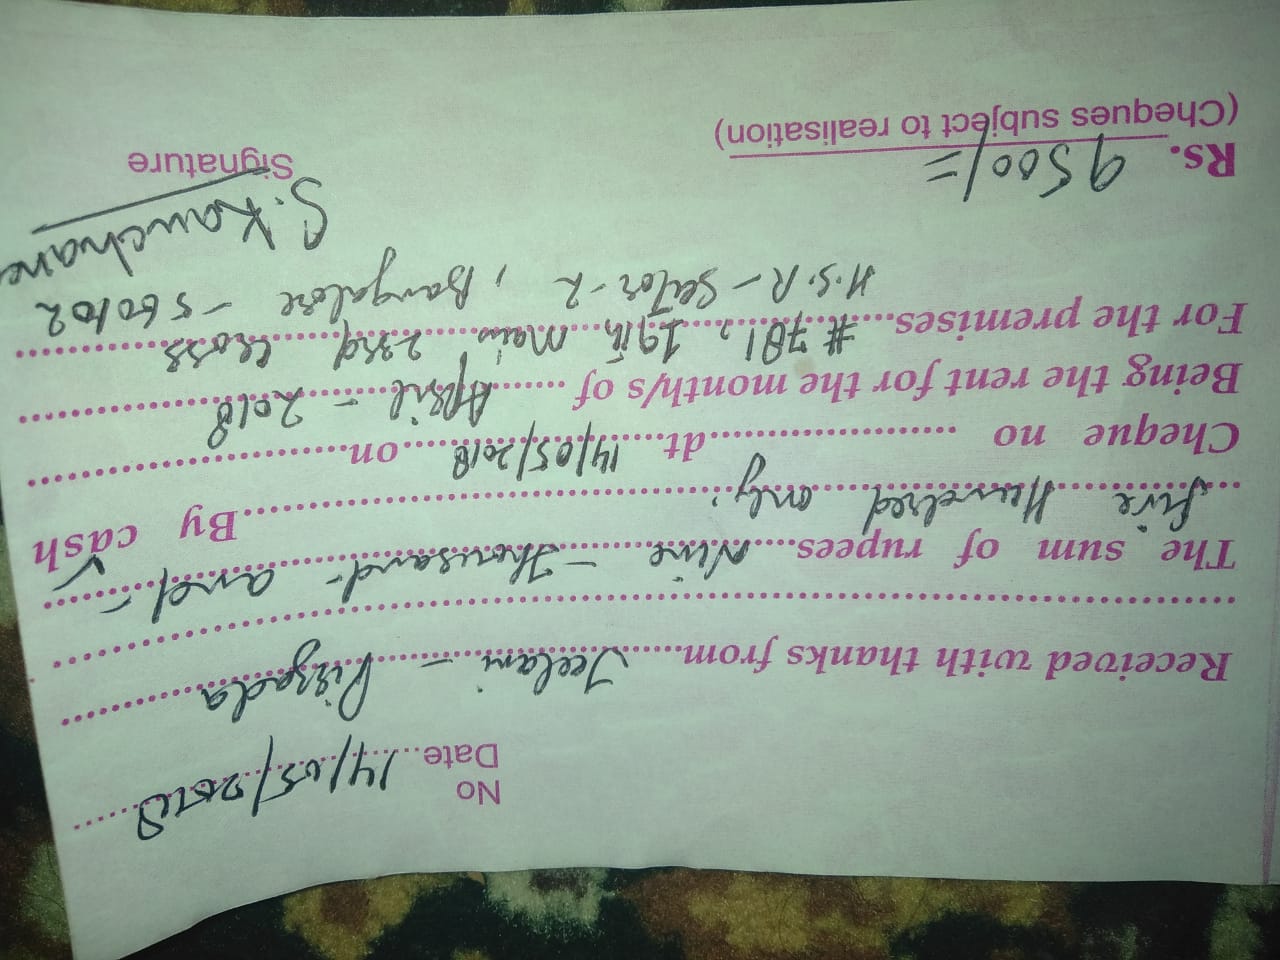 No
Date...14/05/2018......
Received with thanks from......Jeelani - Pirzada............
............................................................
The sum of rupees....Nine - Thousand - and -.....
...five Hundred only:..............................By cash ✓
Cheque no .....................dt....14/05/2018.....on.....................
Being the rent for the month/s of ......April - 2018...............
For the premises...#781, 19th Main 23rd cross............
H.S.R - Sector - 2 , Bangalore - 560102
S. Kanchana
Signature
Rs. 9500/=
(Cheques subject to realisation)